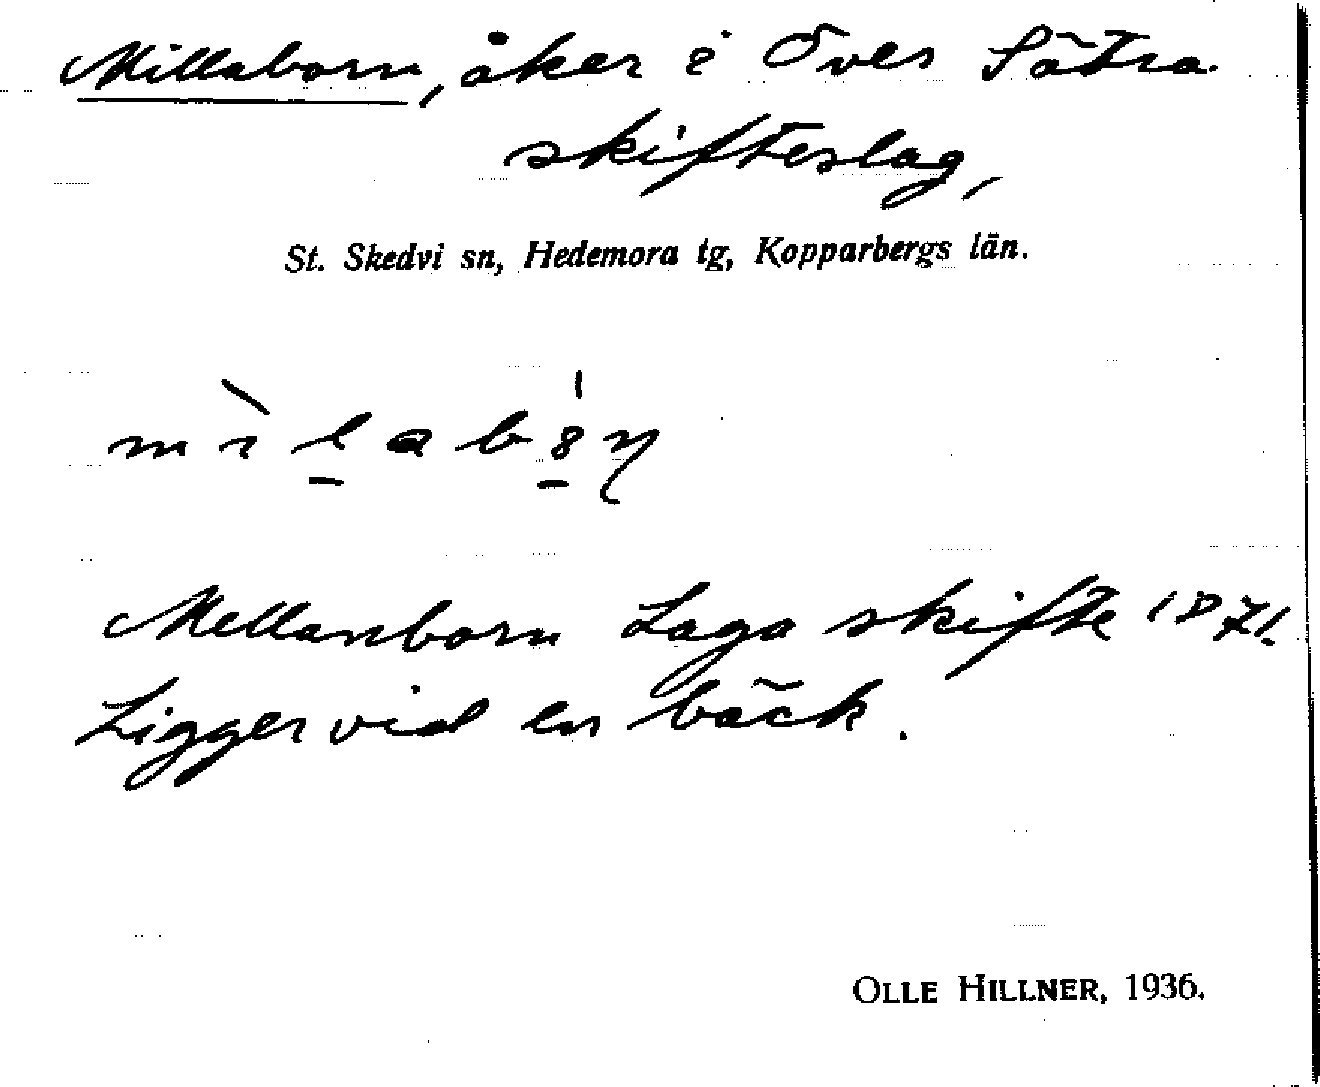 Millaborn, åker i Över Sätra
skifteslag,
St. Skedvi sn, Hedemora tg, Kopparbergs län.
Mellanborn Laga skifte 1871.
Ligger vid en bäck.
OLLE HILLNER, 1936.